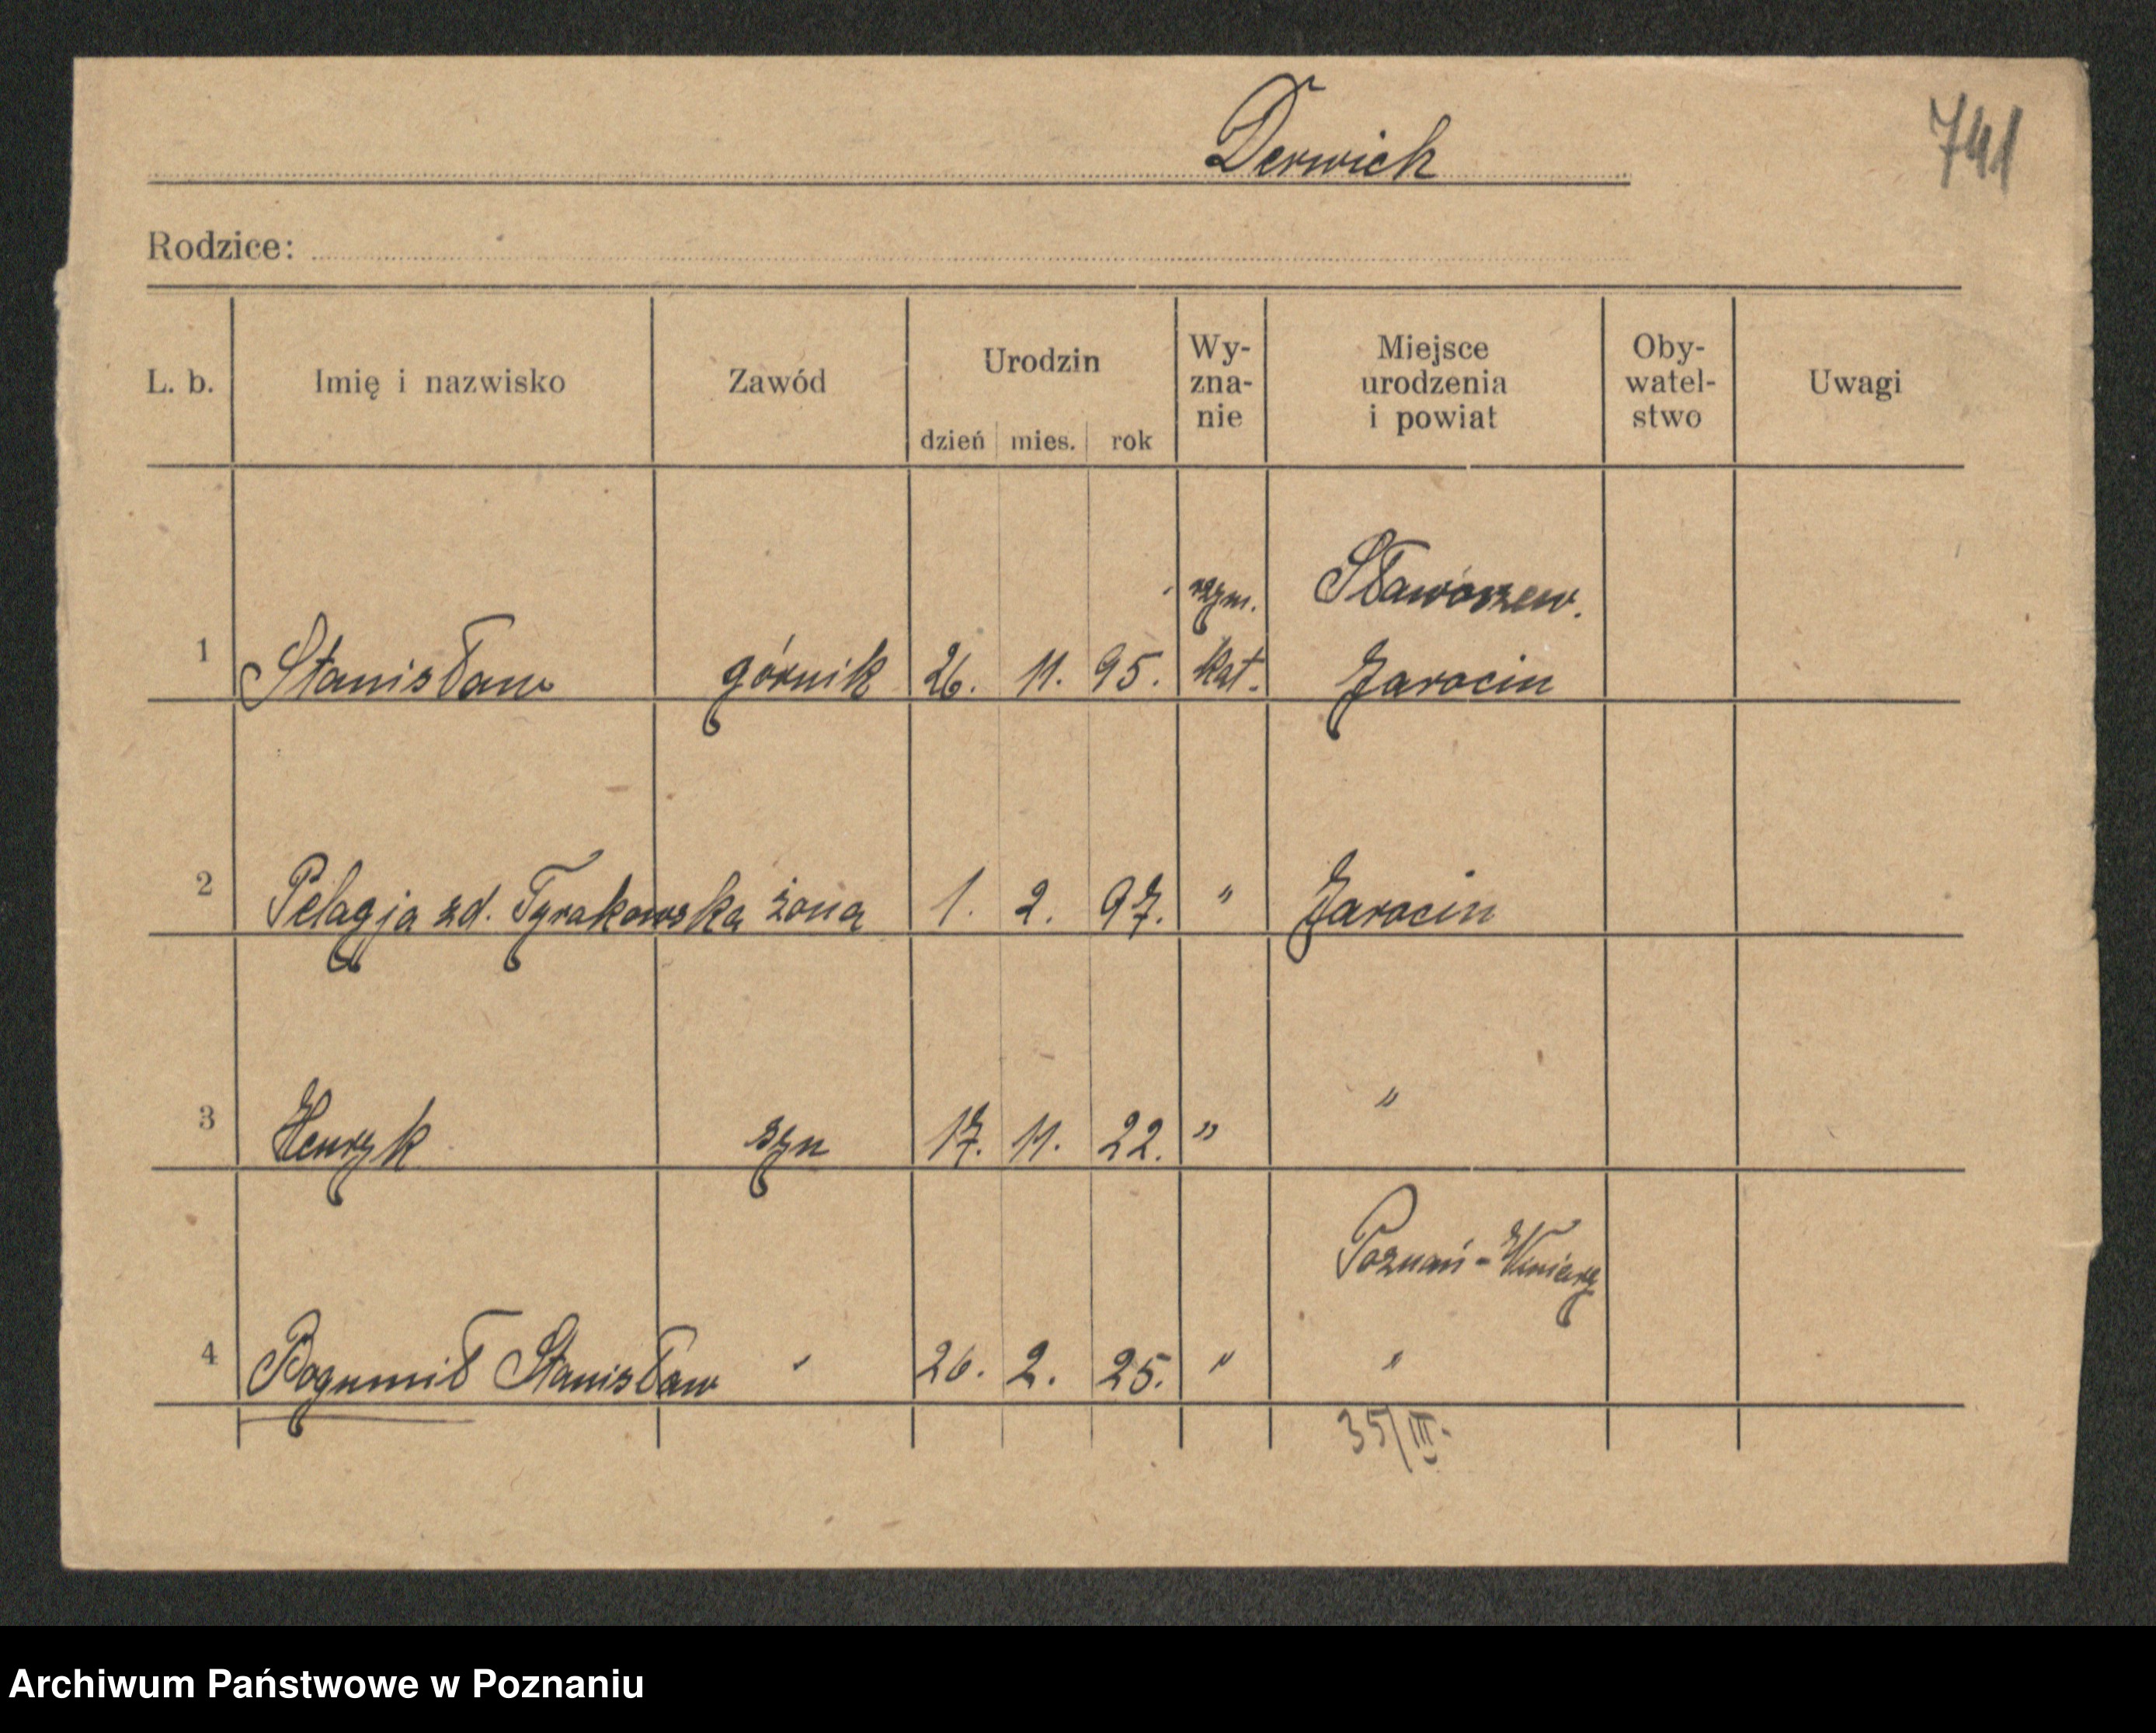 Derwich
741
Rodzice:
L. b. Imię i nazwisko Zawód Urodzin dzień mies. rok Wy-zna-nie Miejsce urodzenia i powiat Oby-watel-stwo Uwagi
rzym. Sławoszew.
1 Stanisław górnik 26. 11. 95. kat. Jarocin
2 Pelagja zd. Tyrakowska żona 1. 2. 97. " Jarocin
3 Henryk syn 17. 11. 22. " "
Poznań - Winiary
4 Bogumił Stanisław " 26. 2. 25. " "
35/III.
Archiwum Państwowe w Poznaniu